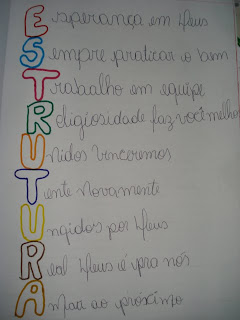 Esperança em Deus
Sempre praticar o bem
Trabalho em equipe
Religiosidade faz você melhor
Unidos venceremos
Tente novamente
Ungidos por Deus
Real Deus é pra nós
Amar ao próximo